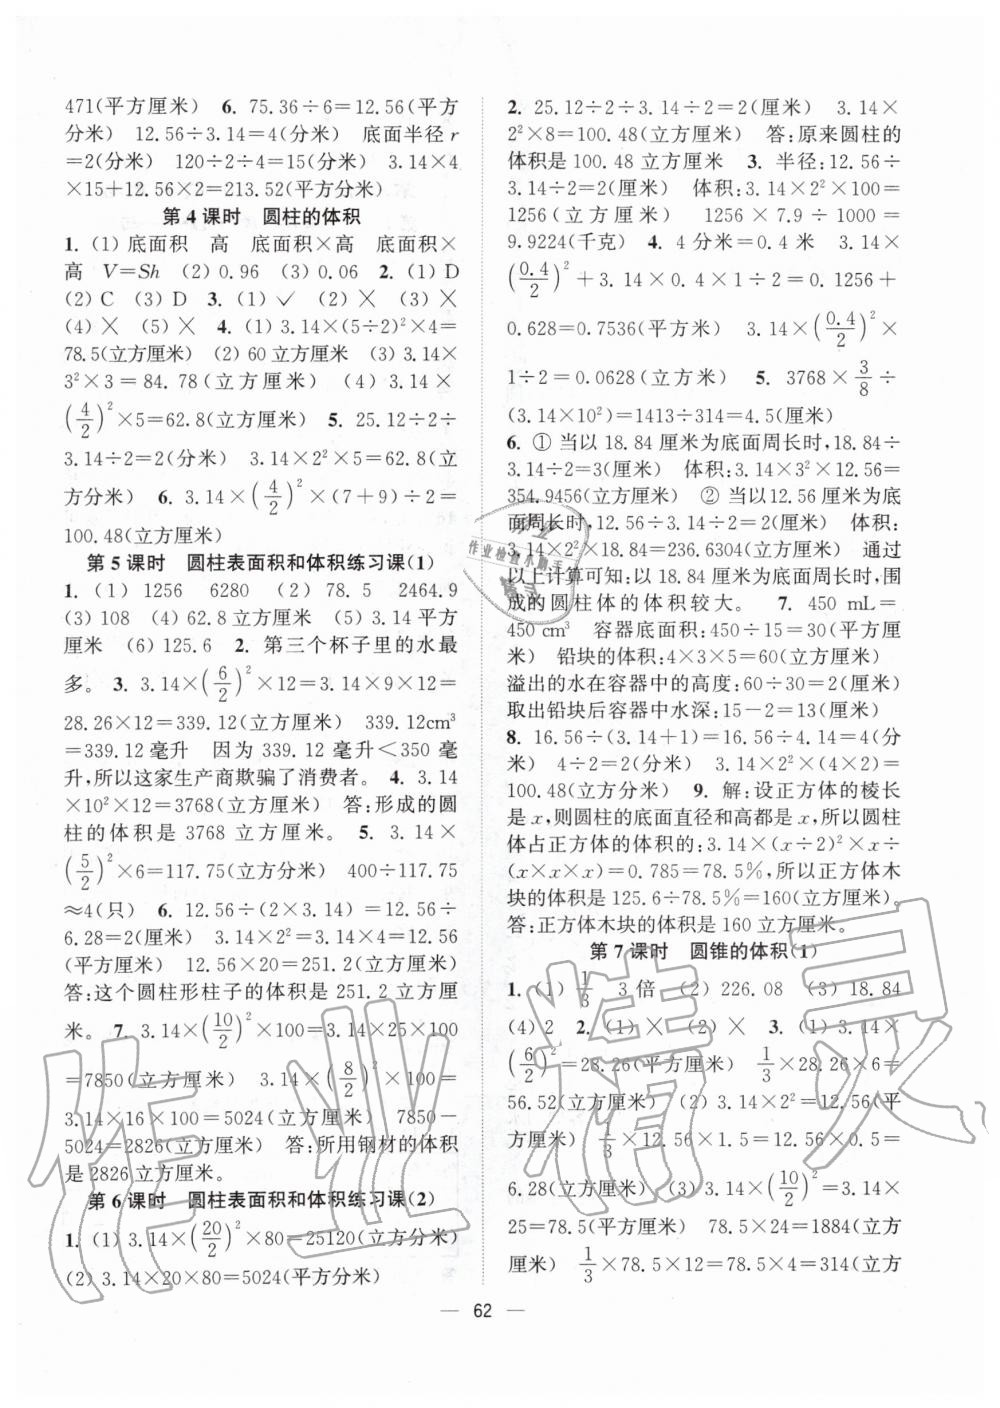 471(平方厘米)　6. 75.36÷6＝12.56(平方
分米)　12.56÷3.14＝4(分米)　底面半径 r
＝2(分米)　120÷2÷4＝15(分米)　3.14×4
×15＋12.56×2＝213.52(平方分米)
第 4 课时　圆柱的体积
1. (1) 底面积　高　底面积×高　底面积×
高　V＝Sh　(2) 0.96　(3) 0.06　2. (1) D
(2) C　(3) D　3. (1) ✓　(2) ×　(3) ×
(4) ×　(5) ×　4. (1) 3.14×(5÷2)²×4＝
78.5(立方厘米)　(2) 60 立方厘米　(3) 3.14×
3²×3＝84.78(立方厘米)　(4) 3.14×
(4/2)²×5＝62.8(立方厘米)　5. 25.12÷2÷
3.14÷2＝2(分米)　3.14×2²×5＝62.8(立
方分米)　6. 3.14×(4/2)²×(7＋9)÷2＝
100.48(立方厘米)
第 5 课时　圆柱表面积和体积练习课(1)
1. (1) 1256　6280　(2) 78.5　2464.9
(3) 108　(4) 62.8 立方厘米　(5) 3.14 平方
厘米　(6) 125.6　2. 第三个杯子里的水最
多。　3. 3.14×(6/2)²×12＝3.14×9×12＝
28.26×12＝339.12(立方厘米)　339.12cm³
＝339.12 毫升　因为 339.12 毫升＜350 毫
升,所以这家生产商欺骗了消费者。　4. 3.14
×10²×12＝3768(立方厘米)　答:形成的圆
柱的体积是 3768 立方厘米。　5. 3.14×
(5/2)²×6＝117.75(立方分米)　400÷117.75
≈4(只)　6. 12.56÷(2×3.14)＝12.56÷
6.28＝2(米)　3.14×2²＝3.14×4＝12.56
(平方米)　12.56×20＝251.2(立方米)
答:这个圆柱形柱子的体积是 251.2 立方
米。　7. 3.14×(10/2)²×100＝3.14×25×100
＝7850(立方厘米)　3.14×(8/2)²×100＝
3.14×16×100＝5024(立方厘米)　7850－
5024＝2826(立方厘米)　答:所用钢材的体积
是 2826 立方厘米。
第 6 课时　圆柱表面积和体积练习课(2)
1. (1) 3.14×(20/2)²×80＝25120(立方分米)
(2) 3.14×20×80＝5024(平方分米)
2. 25.12÷2÷3.14÷2＝2(厘米)　3.14×
2²×8＝100.48(立方厘米)　答:原来圆柱的
体积是 100.48 立方厘米　3. 半径:12.56÷
3.14÷2＝2(厘米)　体积:3.14×2²×100＝
1256(立方厘米)　1256×7.9÷1000＝
9.9224(千克)　4. 4 分米＝0.4 米　3.14×
(0.4/2)²＋3.14×0.4×1÷2＝0.1256＋
0.628＝0.7536(平方米)　3.14×(0.4/2)²×
1÷2＝0.0628(立方米)　5. 3768×3/8÷
(3.14×10²)＝1413÷314＝4.5(厘米)
6. ① 当以 18.84 厘米为底面周长时,18.84÷
3.14÷2＝3(厘米)　体积:3.14×3²×12.56＝
354.9456(立方厘米)　② 当以12.56 厘米为底
面周长时,12.56÷3.14÷2＝2(厘米)　体积:
3.14×2²×18.84＝236.6304(立方厘米)　通过
以上计算可知:以 18.84 厘米为底面周长时,围
成的圆柱体的体积较大。　7. 450 mL＝
450 cm³　容器底面积:450÷15＝30(平方厘
米)　铅块的体积:4×3×5＝60(立方厘米)
溢出的水在容器中的高度:60÷30＝2(厘米)
取出铅块后容器中水深:15－2＝13(厘米)
8. 16.56÷(3.14＋1)＝16.56÷4.14＝4(分
米)　4÷2＝2(分米)　3.14×2²×(4×2)＝
100.48(立方分米)　9. 解:设正方体的棱长
是 x,则圆柱的底面直径和高都是 x,所以圆柱
体占正方体的体积的:3.14×(x÷2)²×x÷
(x×x×x)＝0.785＝78.5％,所以正方体木
块的体积是:125.6÷78.5％＝160(立方厘米)。
答:正方体木块的体积是 160 立方厘米。
第 7 课时　圆锥的体积(1)
1. (1) 1/3　3 倍　(2) 226.08　(3) 18.84
(4) 2　2. (1) ×　(2) ×　3. (1) 3.14×
(6/2)²＝28.26(平方厘米)　1/3×28.26×6＝
56.52(立方厘米)　(2) 3.14×2²＝12.56(平
方厘米)　1/3×12.56×1.5＝12.56×0.5＝
6.28(立方厘米)　(3) 3.14×(10/2)²＝3.14×
25＝78.5(平方厘米)　78.5×24＝1884(立方
厘米)　1/3×78.5×12＝78.5×4＝314(立方
— 62 —
作业精灵
作业检查小助手